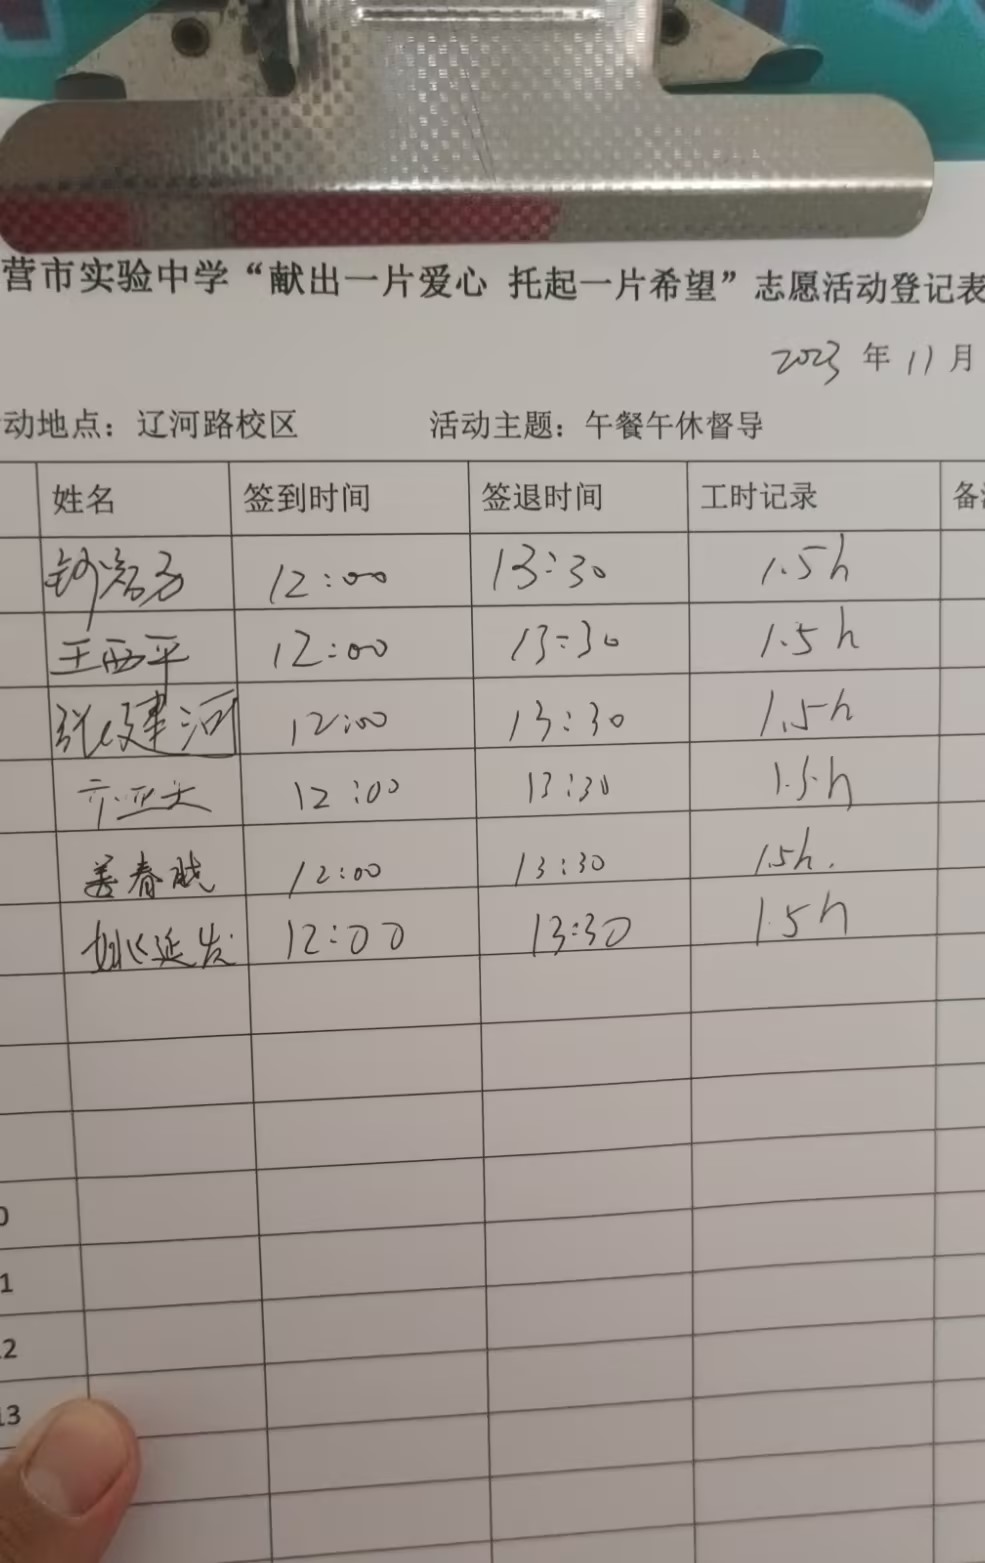 营市实验中学“献出一片爱心 托起一片希望”志愿活动登记表
2023 年 11 月
动地点：辽河路校区 活动主题：午餐午休督导
姓名 签到时间 签退时间 工时记录 备
12:00 13:30 1.5h
王西平 12:00 13:30 1.5h
张建河 12:00 13:30 1.5h
12:00 13:30 1.5h
姜春晓 12:00 13:30 1.5h.
姚延发 12:00 13:30 1.5h
0
1
12
13